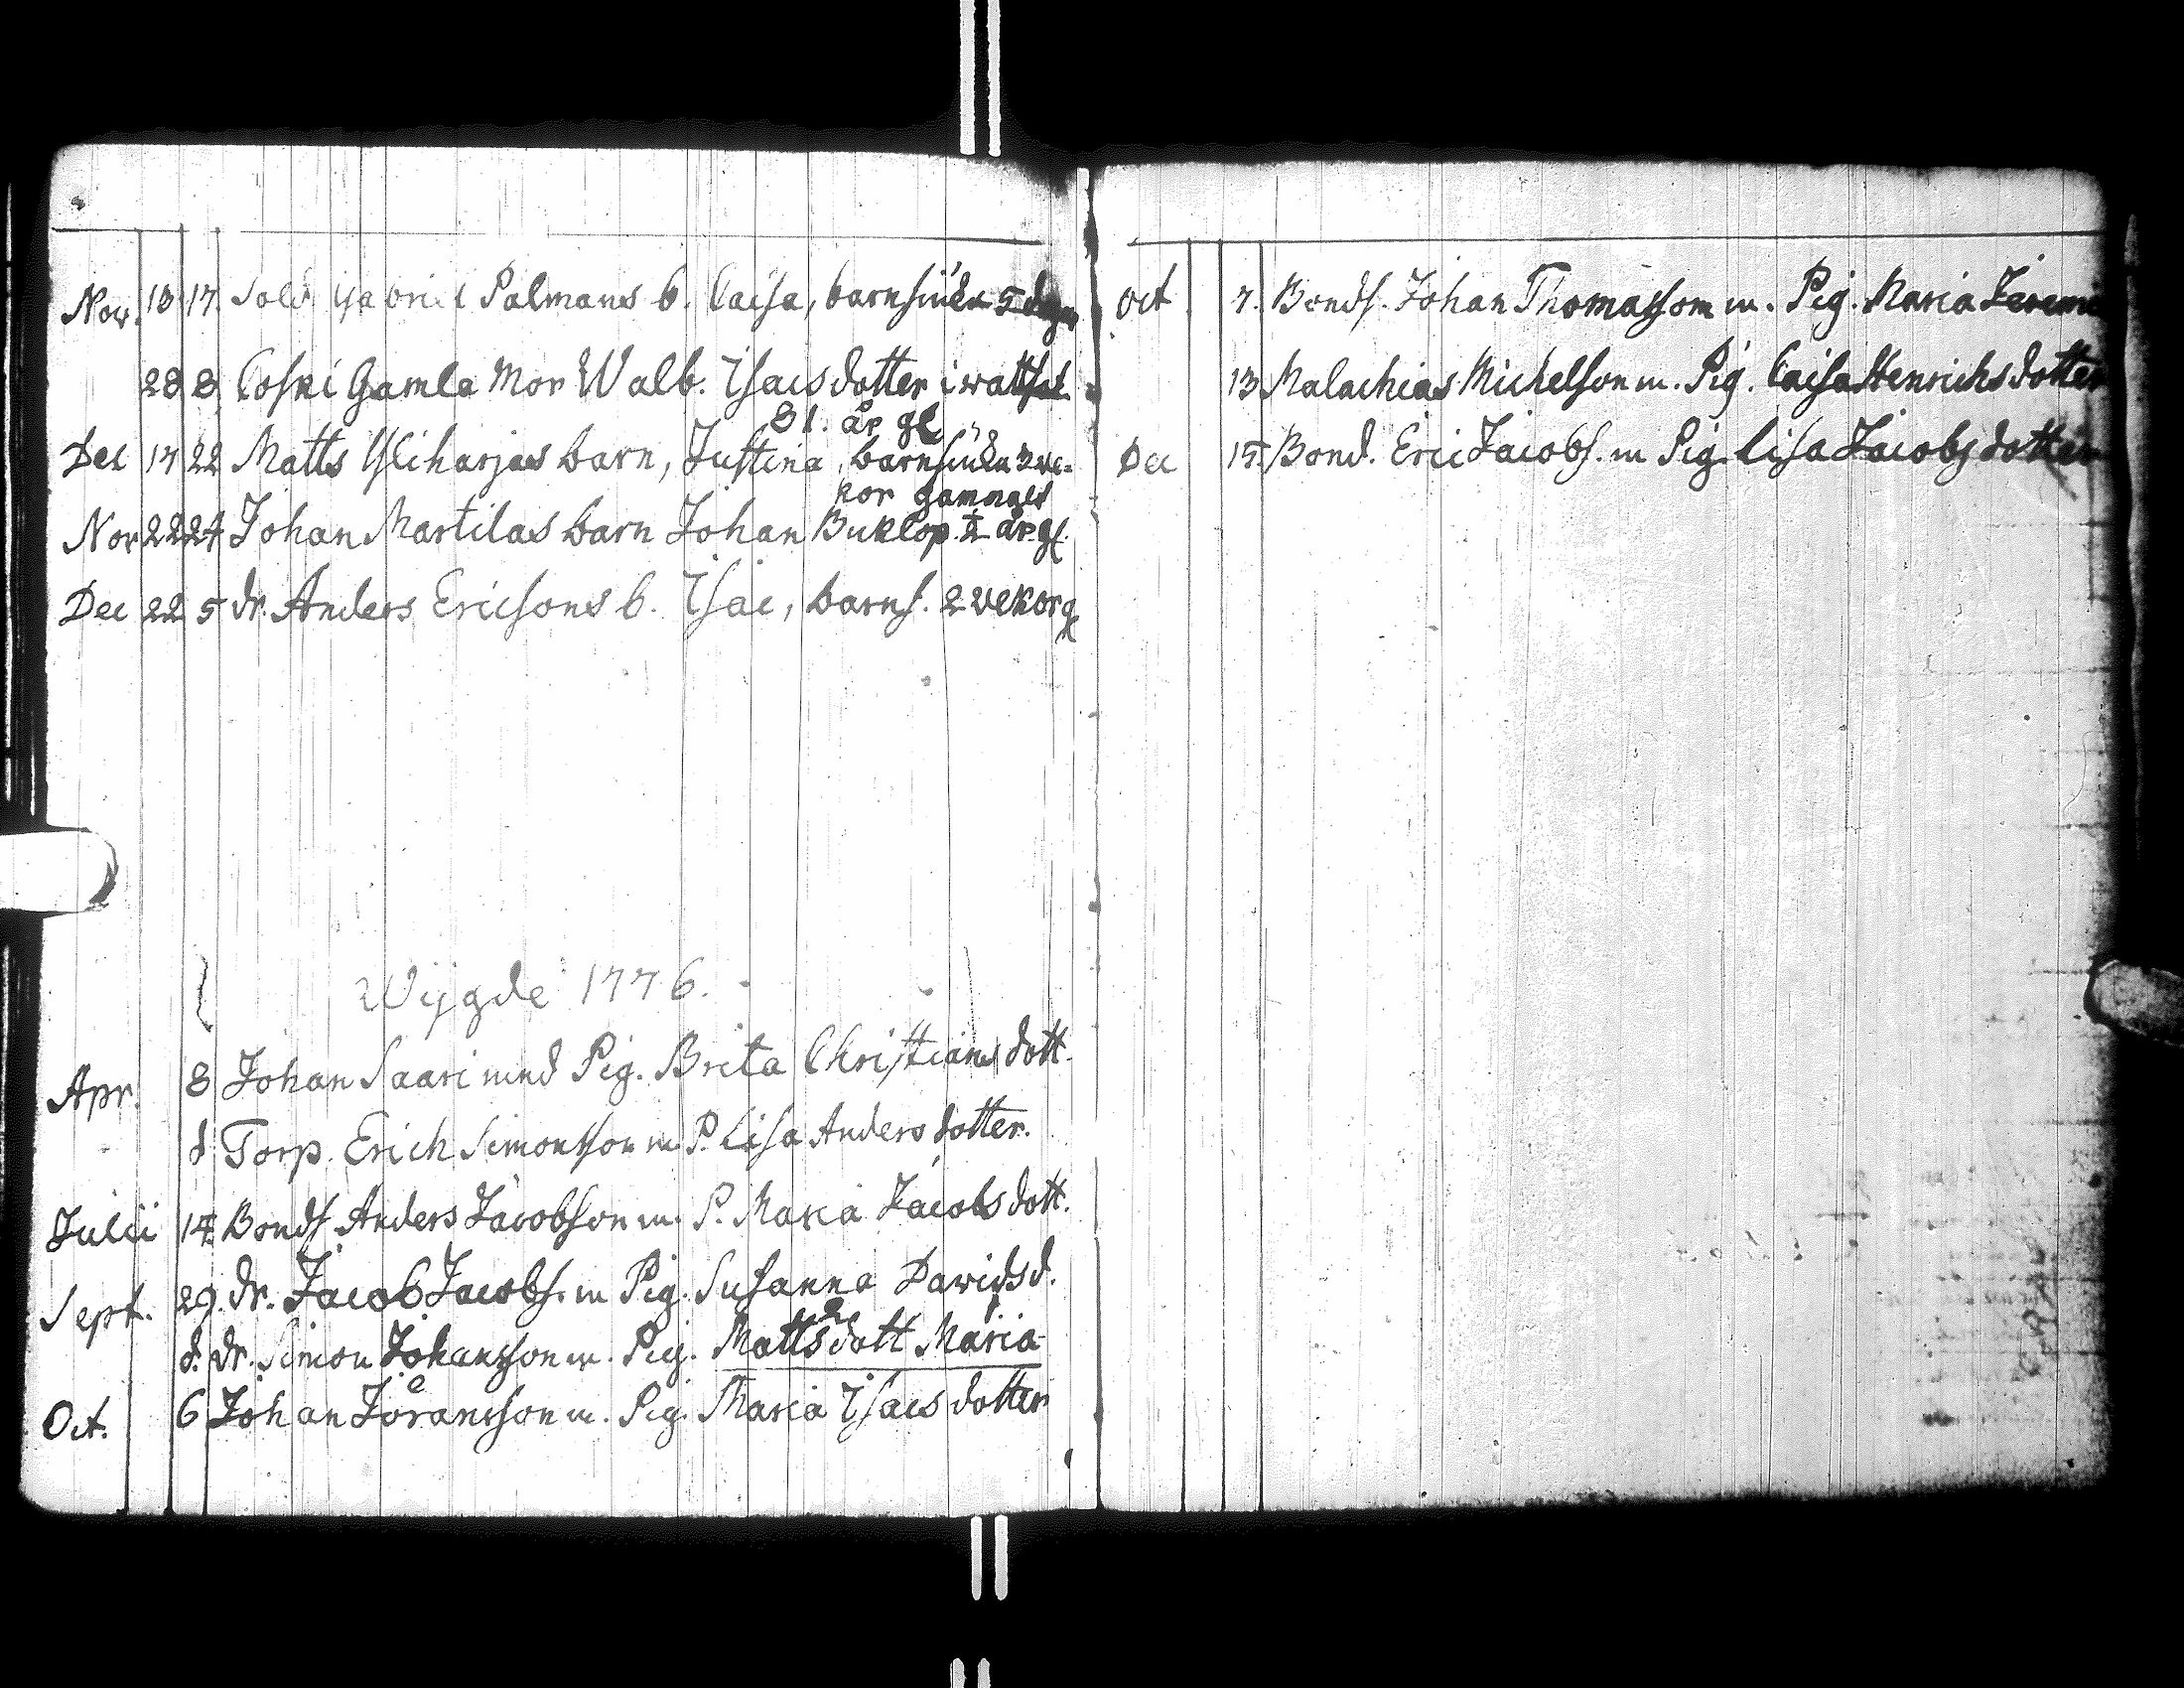 Nov. 10 17. Sold Gabriel Palmans b. Caisa, barnsiuka 5 dagar
28 8 Coski Gamla Mor Walb. Isacsdotter i wattsot
81. år gl
Dec 17 22 Matts Yliharjas barn, Justina, barnsiuka 3 we-
kor gammalt
Nov 22 24 Johan Martilas barn Johan Buklop. år gl.
Dec 22 5 dr. Anders Ericsons b. Isac, barns. 2 vekor gl
Wijgde 1776.
Apr. 8 Johan Saari med Pig. Brita Christians dott.
d Torp. Erich Simonsson m. P. Lisa Anders dotter.
Julii 14. Bonds. Anders Jacobson m. P. Maria Jacobs dott.
Sept. 29. dr. Jacob Jacobs. m Pig. Susanna Davidsd.
d. dr. Simon Johansson m. Pig. Matts dott Maria
Oct. 6 Johan Jöransson m. Pig. Maria Isacs dotter
Oct 7. Bonds. Johan Thomasson m. Pig. Maria
13 Malachias Michelson m. Pig. Caisa Henrichs dotter
Dec 15. Bond. Eric Jacobs. m Pig. Lisa Jacobs dotter